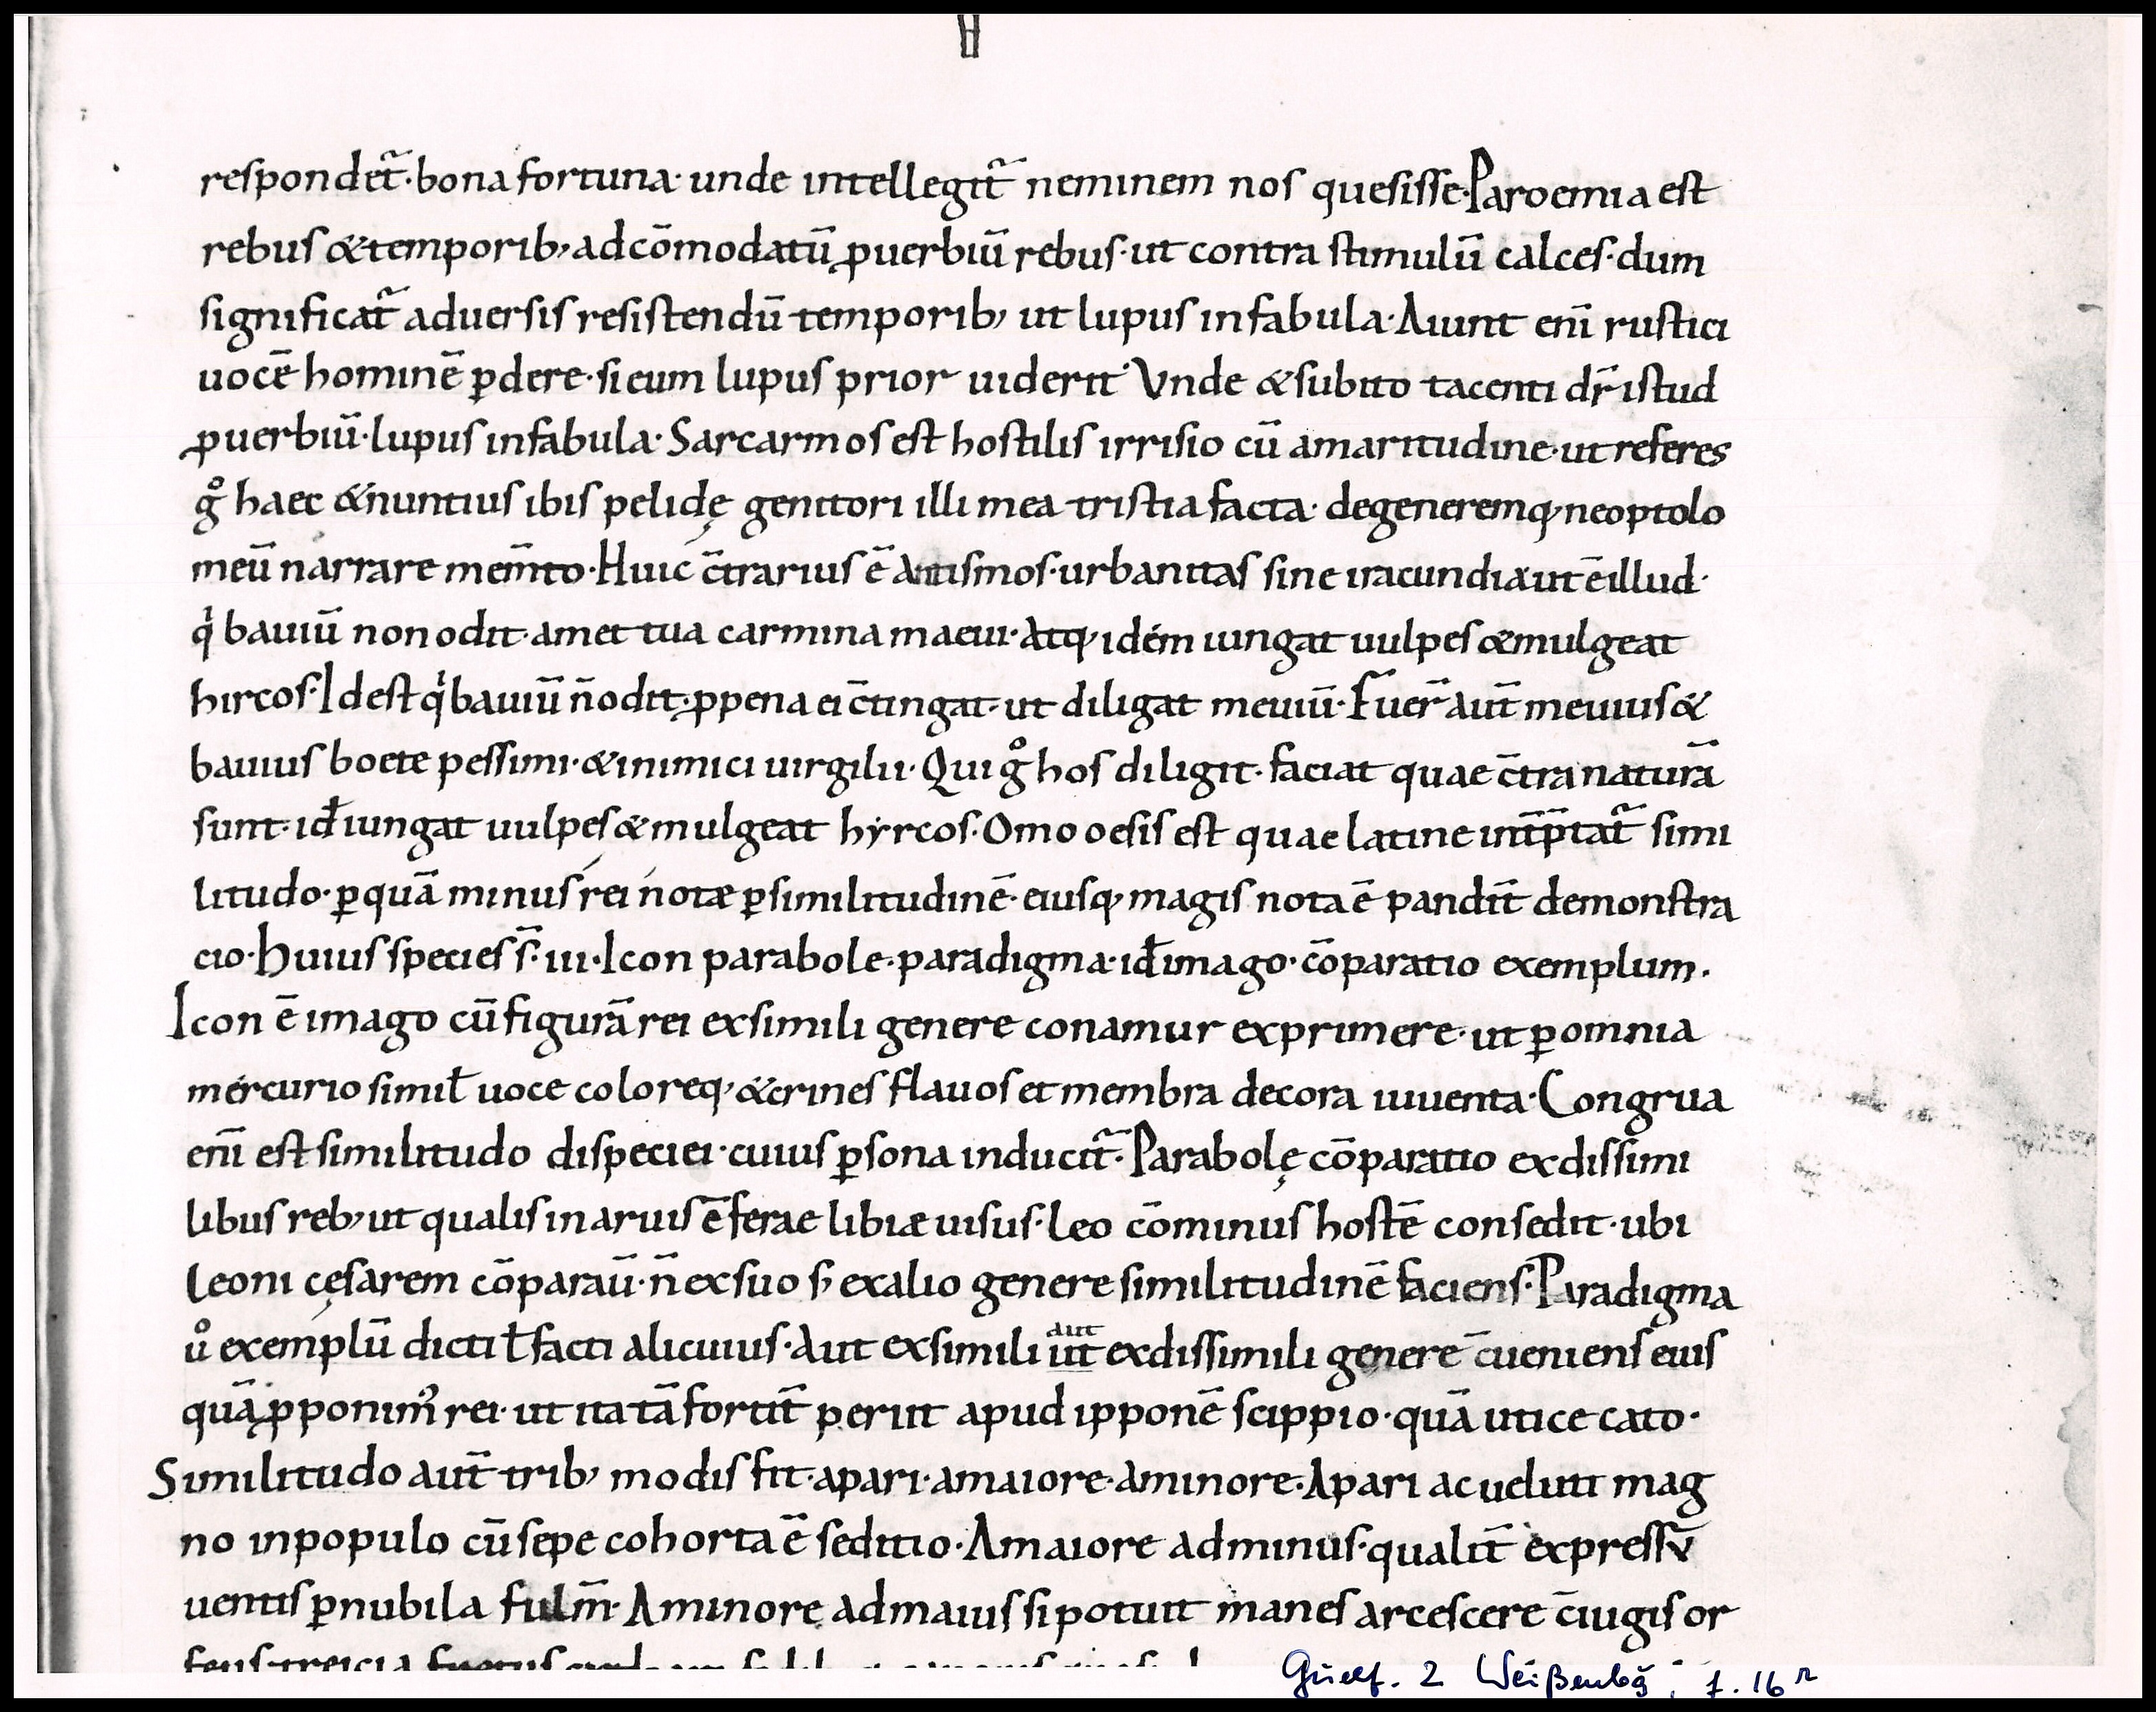 respondet᷑·bona fortuna· unde intellegit᷑ neminem nos quesisse·Paroemia est
rebus & temporib; adcōmodatū ꝓuerbiū rebus·ut contra stimulū calces·dum
significat᷑ aduersis resistendū temporib; ut lupus infabula·Aiunt enī rustici
uocē hominē ꝑdere·si eum lupus prior uiderit· Vnde & subito tacenti dr̄ istud
ꝓuerbiū·lupus infabula· Sarcarmos est hostilis irrisio cū amaritudine·ut referes
gͦ haec & nuntius ibis pelidę genitori illi mea tristia facta· degeneremq; neoptolo
meū narrare mem̄to·Huic c̄trarius ē Antismos·urbanitas sine iracundia ut ē illud·
qⁱ bauiū non odit·amet tua carmina maeui·Atq; idém iungat uulpes & mulgeat
hircos·Idest qⁱ bauiū n̄ odit·ꝓ pena ei c̄tingat·ut diligat meuiū·Fuer̄ aut̄ meuius &
bauius boete pessimi·& inimici uirgilii·Qui gͦ hos diligit·faciat quae c̄tra naturā
sunt·id ÷ iungat uulpes & mulgeat hyrcos·Omooesis est quae latine int̄p̄tat᷑ simi
litudo·ꝑquā minus rei notæ ꝑsimilitudinē·eiusq; magis nota ē pandit̄ demonstra
cio·Huius species s̄·iii·Icon parabole·paradigma·id ÷ imago·cōparatio exemplum·
Icon ē imago cū figurā rei exsimili genere conamur exprimere·ut ꝑomnia
mércurio simił uoce coloreq; & crines flauos et membra decora iuuenta·Congrua
enī est similitudo dispeciei·cuius ꝑsona inducit᷑·Parabolę cōparatio exdissimi
libus reb; ut qualis in aruis ē ferae libiæ uisus·Leo cōminus hostē consedit·ubi
Leoni cęsarem cōparauī·n̄ exsuo s; exalio genere similitudinē faciens·Paradigma
uͦ exemplū dicti ł facti alicuius·Aut exsimili ut exdissimili genere c̄ueniens eius
aut
quā ꝓponim᷒ rei·ut ita tā fortit̄ periit apud ipponē scippio·quā utice cato·
Similitudo aut̄ trib; modis fit·apari·amaiore·aminore·Apari ac ueluti mag
no inpopulo cū sepe cohorta ē seditio·Amaiore adminus·qualit̄ expressū
uentis ꝑnubila fulm̄·Aminore admaius si potuit manes arcescere c̄iugis or
feus treicia
Guelf. 2 Weißenbg̃; f. 16ʳ